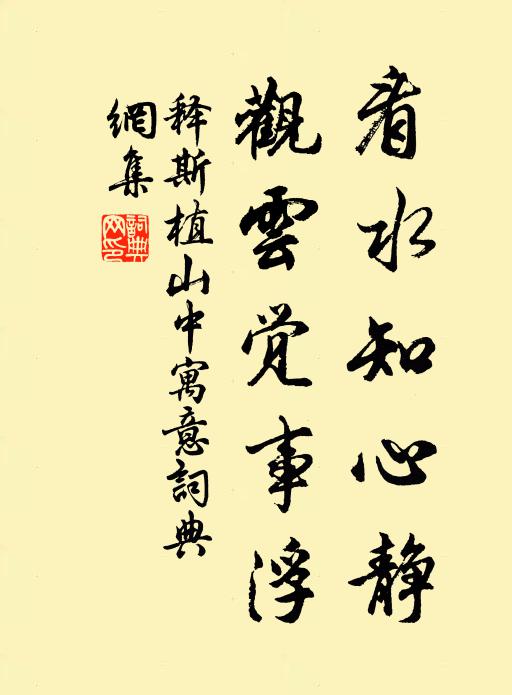 看水知心静
觀雲觉事浮
释斯植山中寓意詞典
網集
詞典
网印